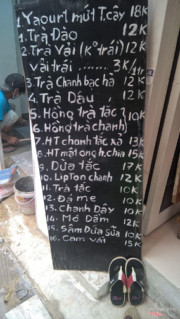 1. Yaourt mứt T.cây 18K
Trà Đào 12K
2. Trà Vải (Kº trái) 12K
vải trái ....... 3K/1tr
3. Trà Chanh bạc hà 12K
4. Trà Dâu 12K
5. Hồng trà tắc 10K
6. Hồng trà chanh
7. HT chanh tắc xả 13K
8. HT mật ong, h.chia 15K
9. Dừa tắc 12K
10. Lipton chanh 12K
11. Trà tắc 10K
12. Đá me 10K
13. Chanh Dây 10K
14. Mơ Dầm 12K
15. Sâm Dứa Sữa 10K
16. Cam vải 15K